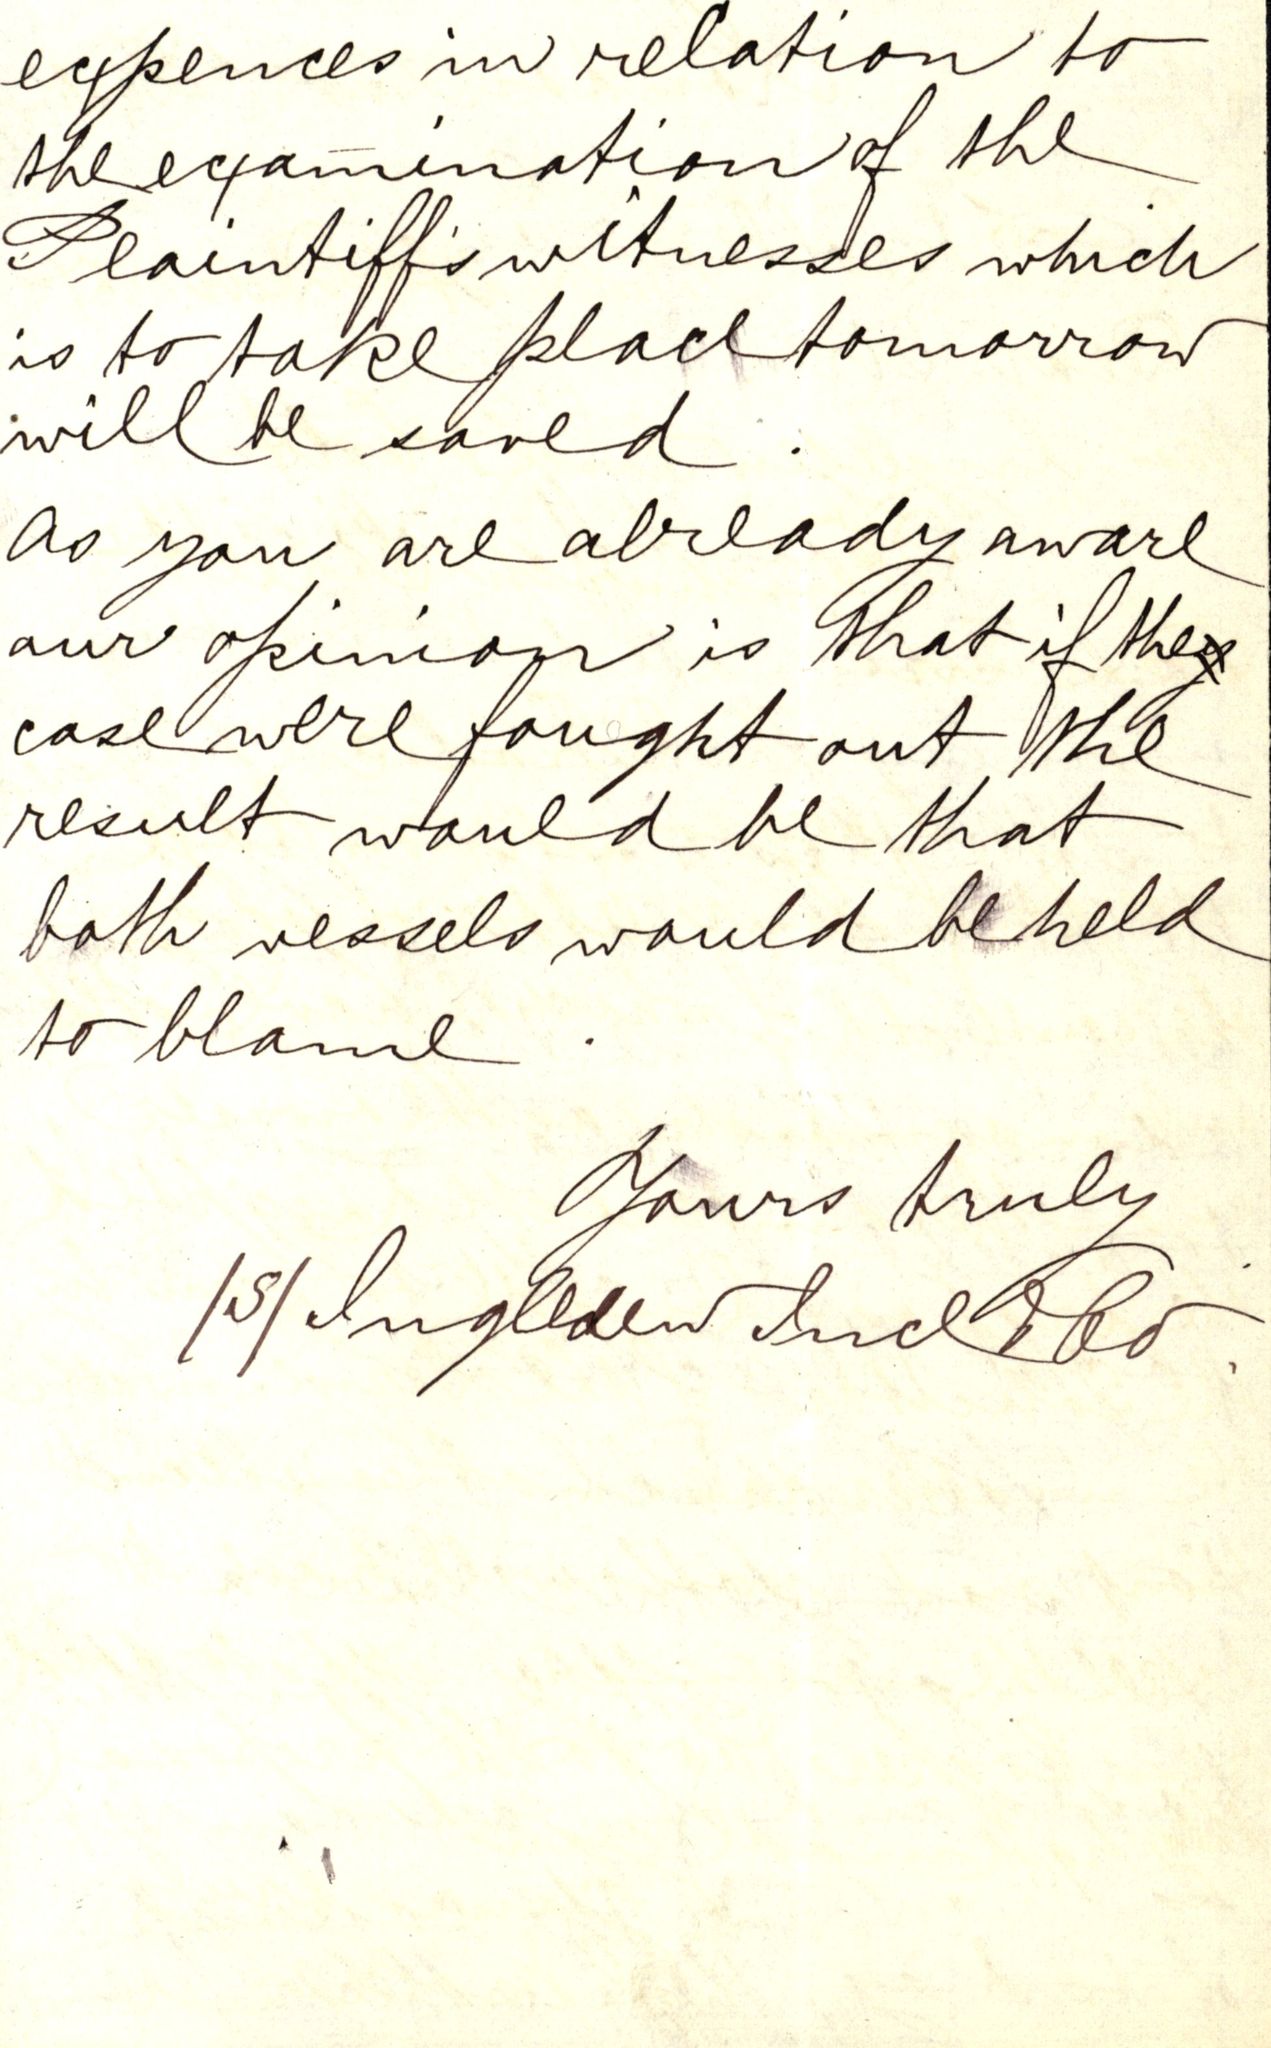 expences in relation to
the examination of the
Plaintiff's witnesses which
is to take place tomorrow
will be saved.
As you are already aware
our opinion is that if the
case were fought out the
result would be that
both vessels would be held
to blame.
Yours truly
/S/ Ingledew Ince & Co.